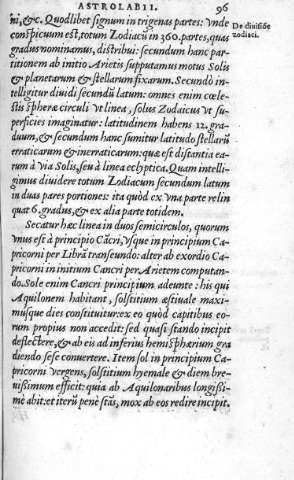 ASTROLABII. 96
ni,&c. Quodlibet signum in trigenas partes: Vnde
De diuisiõe
conspicuum est, totum Zodiacũ in 360. partes, quas
zodiaci.
gradus nominamus, distribui: secundum hanc par-
titionem ab initio Arietis supputamus motus Solis
& planetarum & stellarum fixarum. Secundò in-
telligitur diuidi secundũ latum: omnes enim cœle-
stis sphæræ circuli vt linea, solus Zodiacus vt su-
perficies imaginatur: latitudinem habens 12. gra-
duum, & secundum hanc sumitur latitudo stellarũ
erraticarum & inerraticarum: quæ est distantia ea-
rum à via Solis, seu à linea ecliptica. Quam intelli-
gimus diuidere totum Zodiacum secundum latum
in duas pares portiones: ita quòd ex vna parte relin
quat 6. gradus, & ex alia parte totidem.
Secatur hæc linea in duos semicirculos, quorum
vnus est à principio Cãcri, vsque in principium Ca-
pricorni per Librã transeundo: alter ab exordio Ca-
pricorni in initium Cancri per Arietem computan-
do. Sole enim Cancri principium adeunte: his qui
Aquilonem habitant, solstitium æstiuale maxi-
musque dies constituitur: ex eo quòd capitibus eo-
rum propius non accedit: sed quasi stando incipit
deflectere, & ab eis ad inferius hemisphærium gra
diendo sese conuertere. Item sol in principium Ca-
pricorni vergens, solstitium hyemale & diem bre-
uissimum efficit: quia ab Aquilonaribus longissi-
mè abit: et iterũ penè stãs, mox ab eos redire incipit.